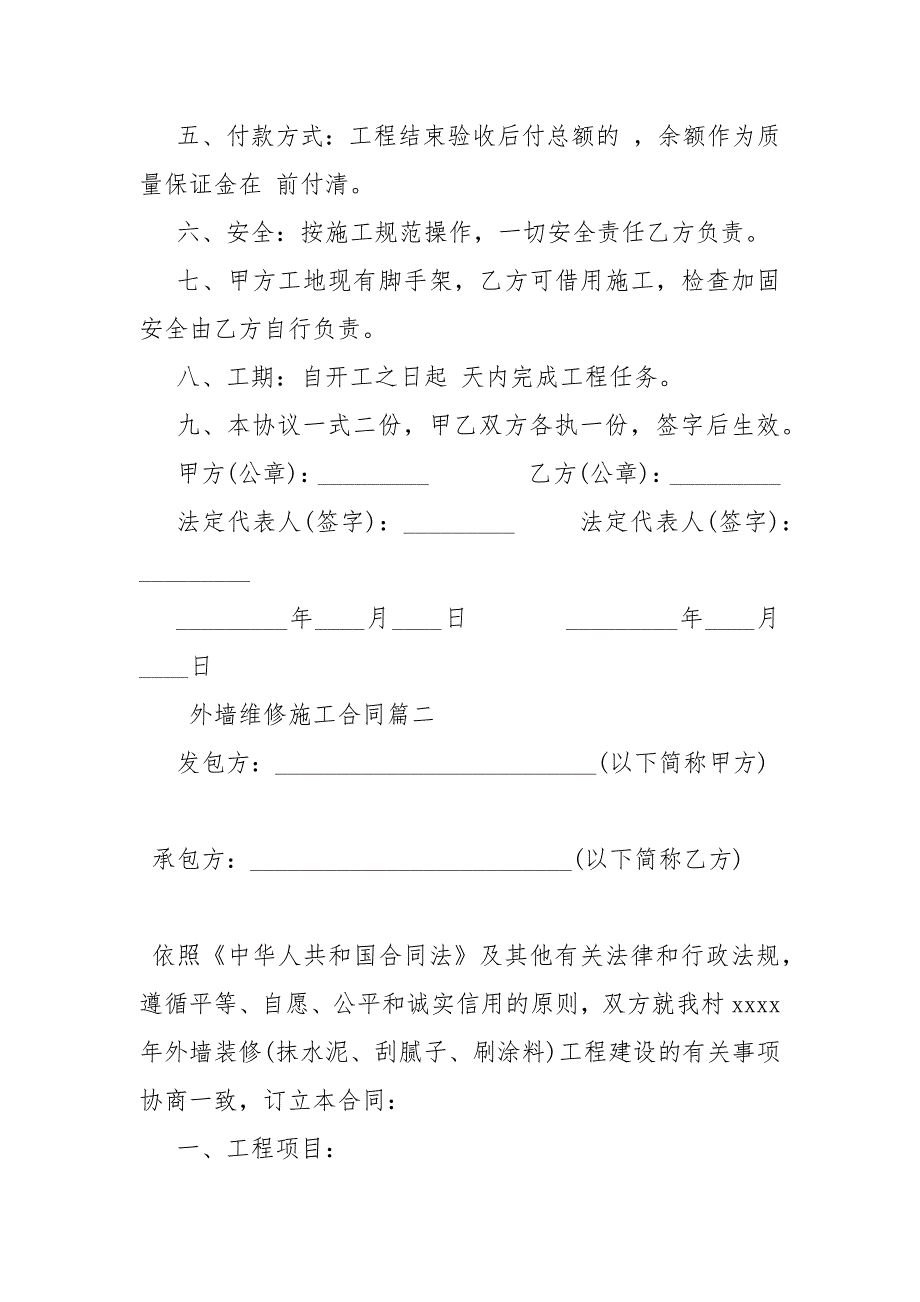 五、付款方式：工程结束验收后付总额的 ，余额作为质
量保证金在 前付清。
六、安全：按施工规范操作，一切安全责任乙方负责。
七、甲方工地现有脚手架，乙方可借用施工，检查加固
安全由乙方自行负责。
八、工期：自开工之日起 天内完成工程任务。
九、本协议一式二份，甲乙双方各执一份，签字后生效。
甲方(公章)：_________ 乙方(公章)：_________
法定代表人(签字)：_________ 法定代表人(签字)：
_________
_________年____月____日 _________年____月
____日
外墙维修施工合同篇二
发包方：__________________________(以下简称甲方)
承包方：__________________________(以下简称乙方)
依照《中华人共和国合同法》及其他有关法律和行政法规，
遵循平等、自愿、公平和诚实信用的原则，双方就我村 xxxx
年外墙装修(抹水泥、刮腻子、刷涂料)工程建设的有关事项
协商一致，订立本合同：
一、工程项目：